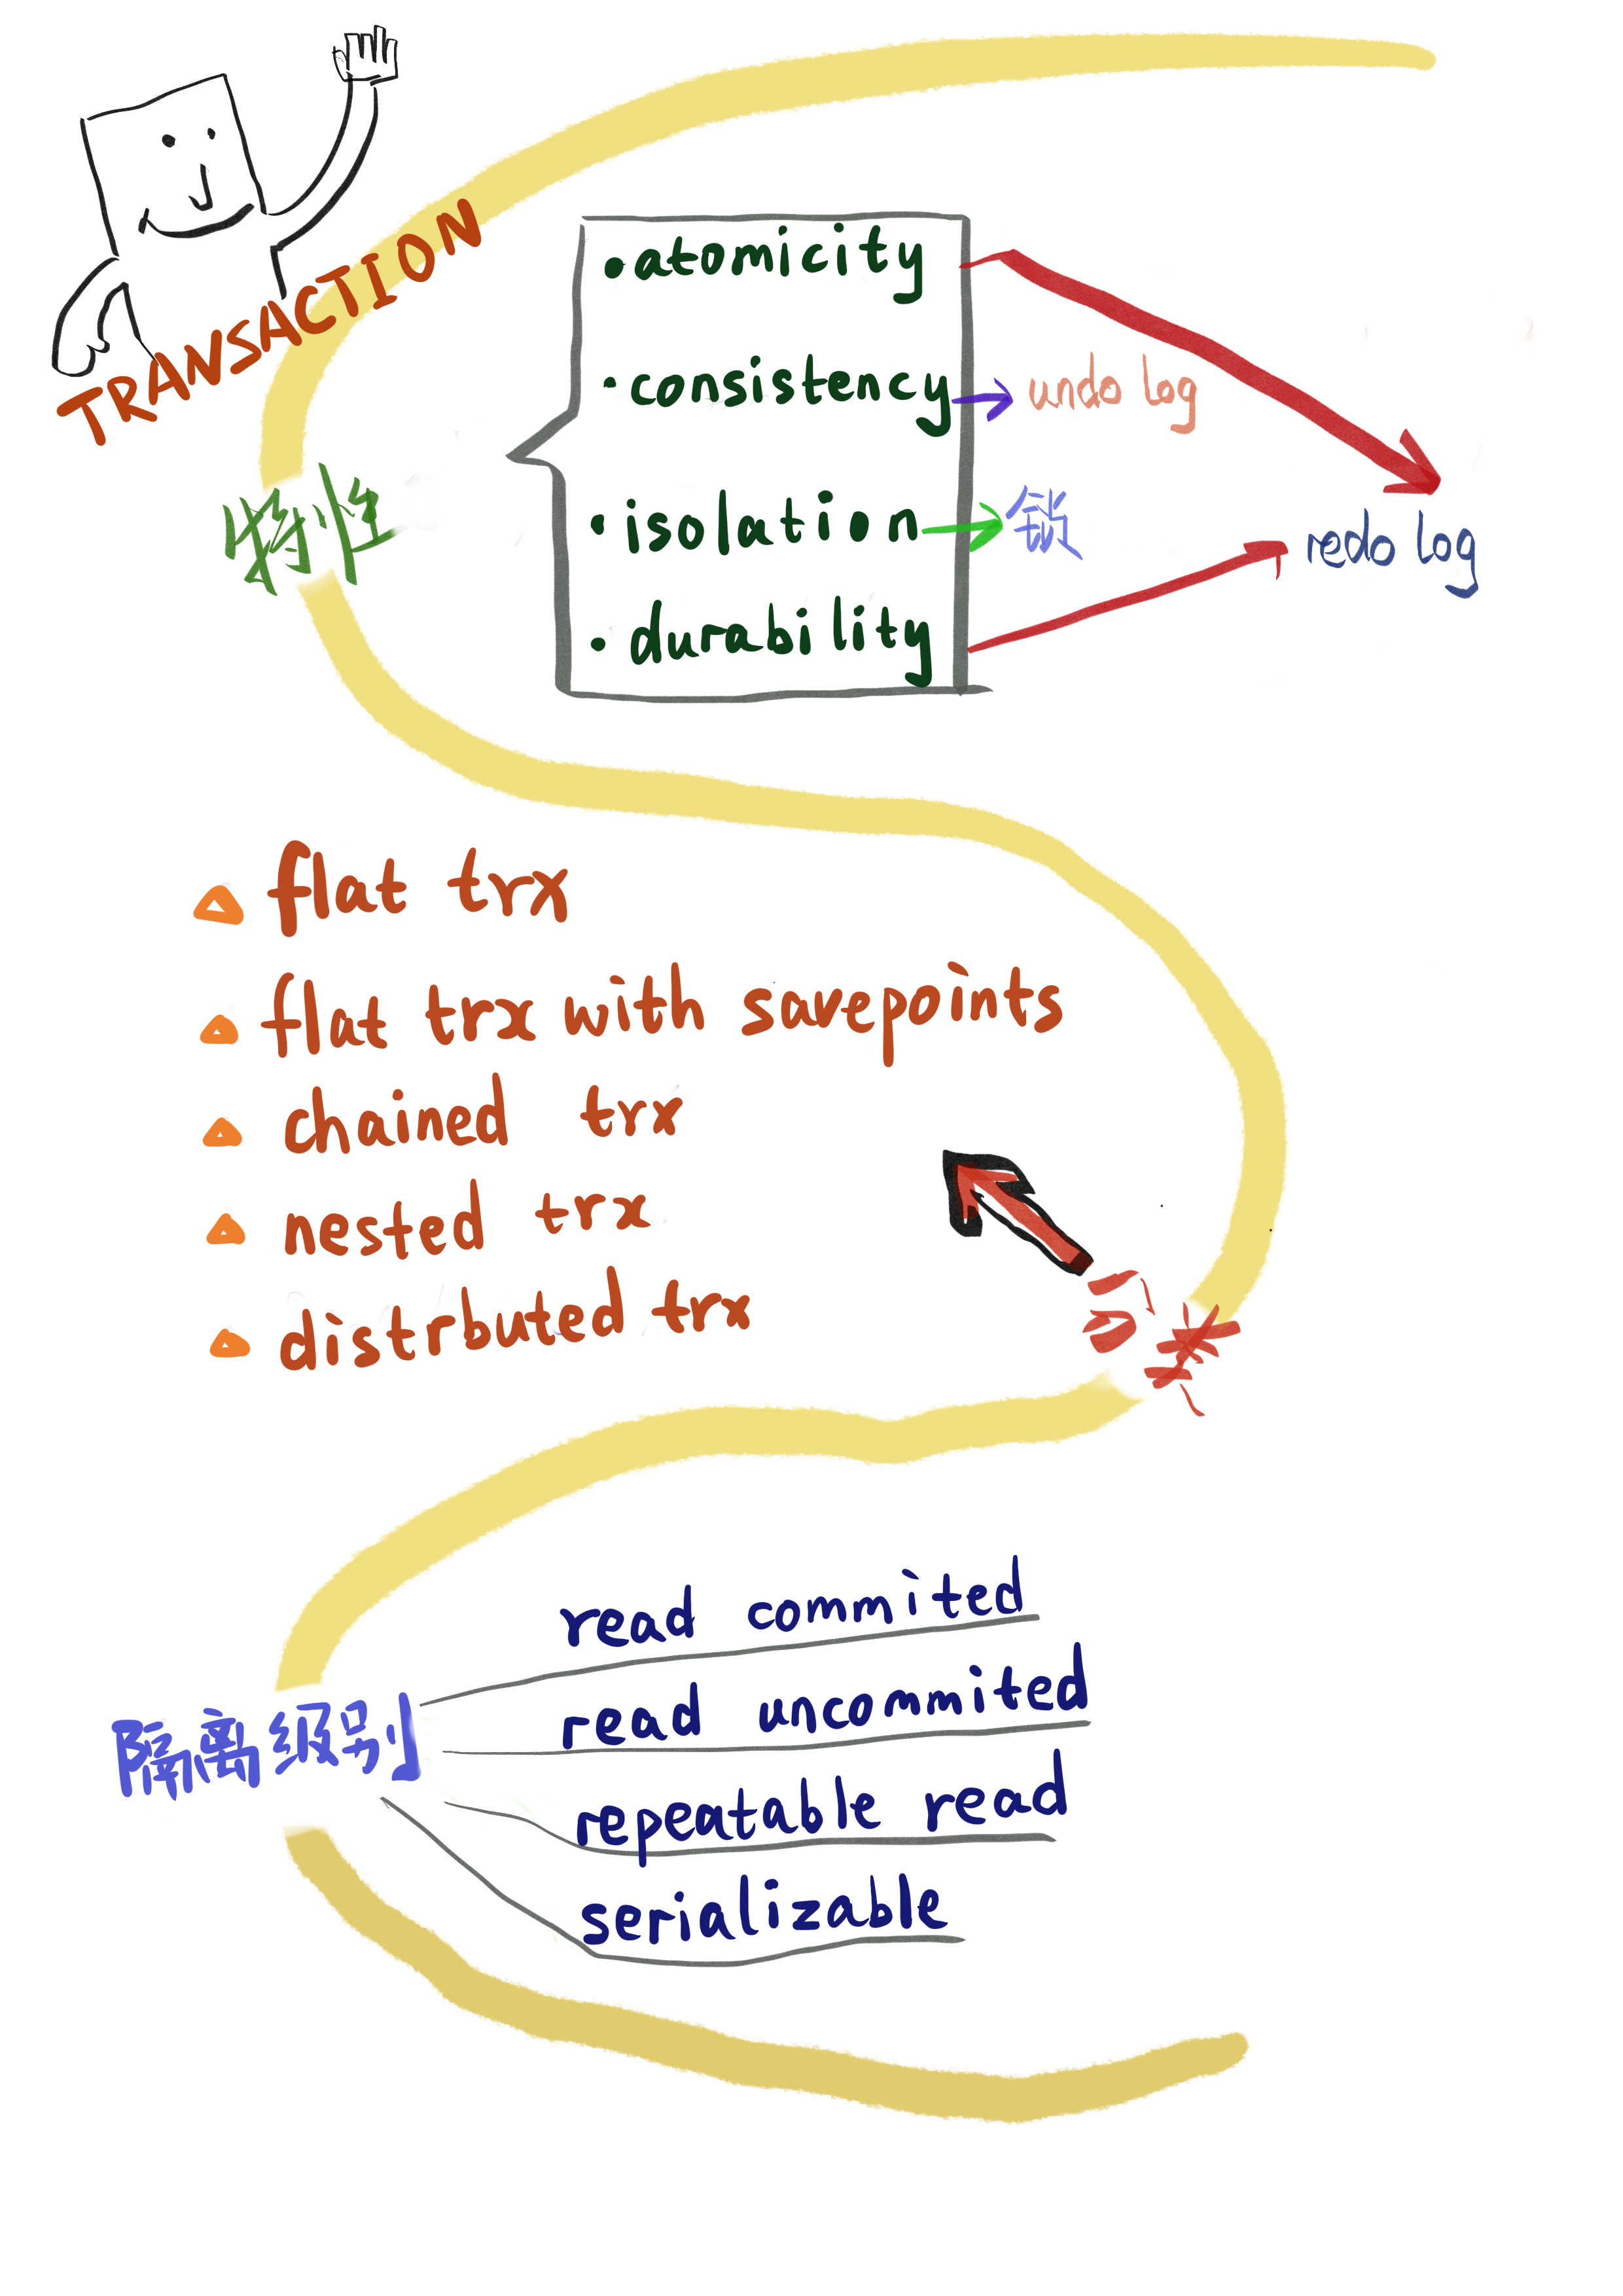 TRANSACTION
• atomicity
• consistency
undo log
• isolation
锁
redo log
• durability
特性
flat trx
flat trx with savepoints
chained trx
nested trx
distrbuted trx
分类
read commited
read uncommited
repeatable read
serializable
隔离级别